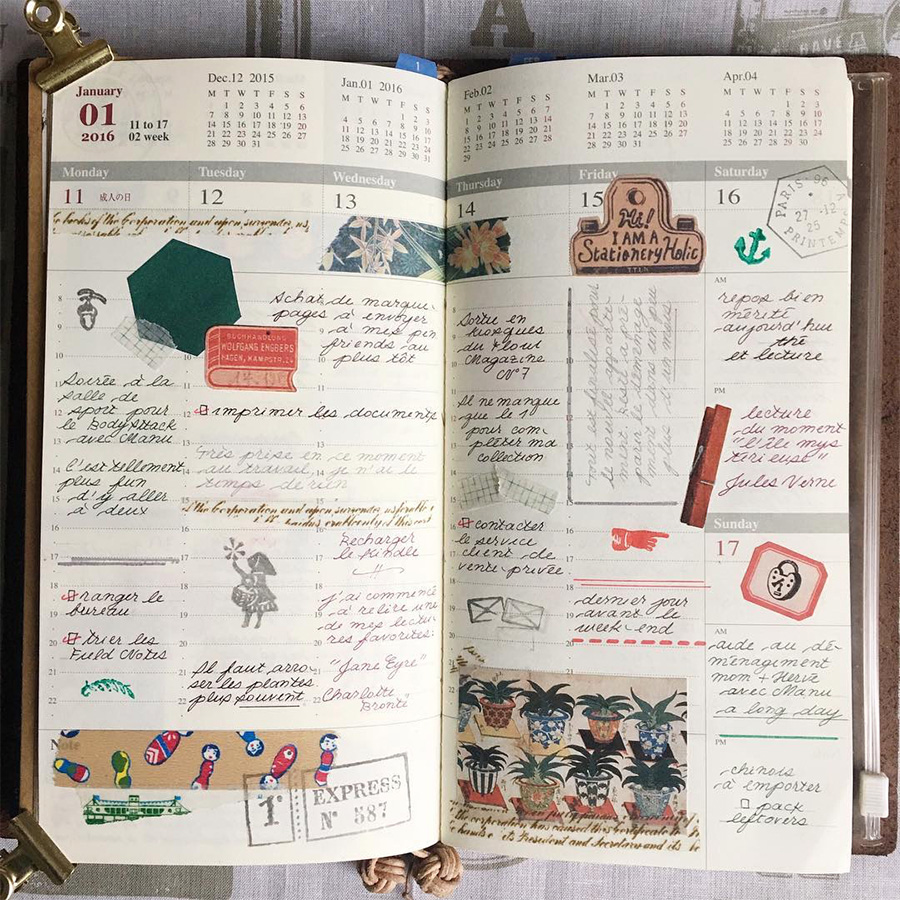 January
01
2016
11 to 17
02 week
Dec.12 2015
M T W T F S S
1 2 3 4 5 6
7 8 9 10 11 12 13
14 15 16 17 18 19 20
21 22 23 24 25 26 27
28 29 30 31
Jan.01 2016
M T W T F S S
1 2 3
4 5 6 7 8 9 10
11 12 13 14 15 16 17
18 19 20 21 22 23 24
25 26 27 28 29 30 31
Feb.02
M T W T F S S
1 2 3 4 5 6 7
8 9 10 11 12 13 14
15 16 17 18 19 20 21
22 23 24 25 26 27 28
29
Mar.03
M T W T F S S
1 2 3 4 5 6
7 8 9 10 11 12 13
14 15 16 17 18 19 20
21 22 23 24 25 26 27
28 29 30 31
Apr.04
M T W T F S S
1 2 3
4 5 6 7 8 9 10
11 12 13 14 15 16 17
18 19 20 21 22 23 24
25 26 27 28 29 30
Monday
11 成人の日
books of the Corporation and upon surrender
Soirée à la
salle de
sport pour
le BodyAttack
avec Manu
C'est tellement
plus fun
d'y aller
à deux
ranger le
bureau
trier les
Field Notes
Tuesday
12
BUCHHANDLUNG
WOLFGANG ENGBERS
HAGEN, KAMPSTR. 24
imprimer les documents
Très prise en ce moment
au travail, je n'ai le
temps de rien
the Corporation and upon surrender
Il faut arro-
ser les plantes
plus souvent
Wednesday
13
Achat de marque-
pages à envoyer
à mes pen
friends au
plus tôt
Recharger
le Kindle
j'ai commencé
à relire une
de mes lectu-
res favorites:
"Jane Eyre"
Charlotte
Brontë
Note
T
EXPRESS
N° 587
Thursday
14
Sortie en
kiosques
du Flow
Magazine
N°7
Il ne manque
que le 1
pour com-
pléter ma
collection
contacter
le service
client de
vente-privée
the corporation has caused this Certificate to
President and Secretary and its
Friday
15
Hi!
I AM A
Stationery Holic
dernier jour
avant le
week-end
Saturday
16
PARIS-96
27 -12
25
PRINTEMPS
AM
repos bien
mérité
aujourd'hui
thé
et lecture
PM
lecture
du moment
"L'île mys
térieuse"
Jules Verne
Sunday
17
AM
aide au dé-
ménagement
mom + Hervé
avec Manu
a long day
PM
chinois
à emporter
pack
leftovers